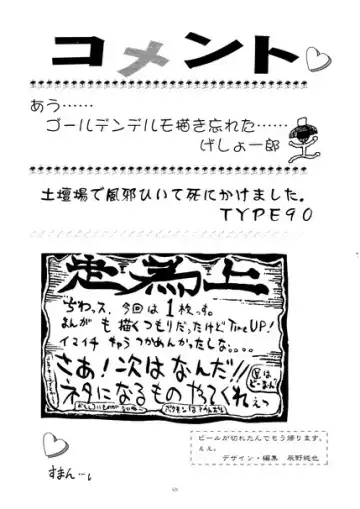 コメント
あう……
ゴールデンデルモ描き忘れた……
げしょ一郎
土壇場で風邪ひいて死にかけました。
TYPE90
走為上
ちわっス、今回は1枚っす。
まんがも描くつもりだったけどTimeUP!
イマイチキャラつかめんかったしな。。。
さあ!次はなんだ!!
ネタになるものやってくれぇっ
ビールが切れたんでもう帰ります。
ええ。
デザイン・編集 辰野純也
すまん…。